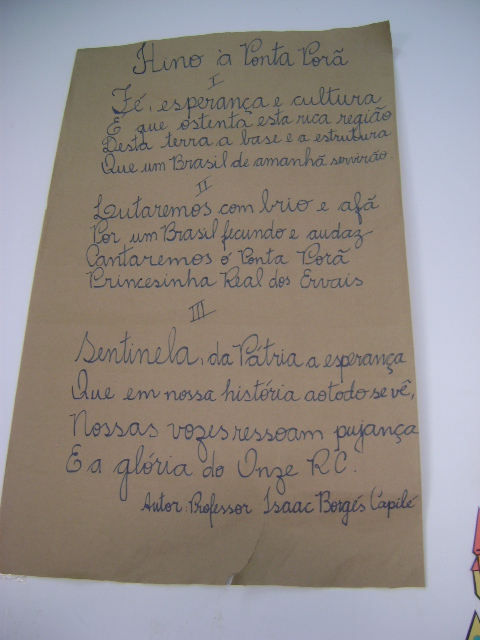 Hino à Ponta Porã
I
Fé, esperança e cultura
É que ostenta esta rica região
Desta terra a base e a estrutura
Que um Brasil de amanhã servirão.
II
Lutaremos com brio e afã
Por um Brasil fecundo e audaz
Cantaremos ó Ponta Porã
Princesinha Real dos Ervais
III
Sentinela, da Pátria a esperança
Que em nossa história ao todo se vê,
Nossas vozes ressoam pujança
E a glória do Onze RC.
Autor: Professor Isaac Borgés Capilé